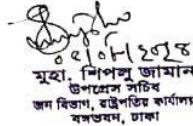 ০৫/০৮/২০২৪
মুহা. শিপলু জামান
উপপ্রেস সচিব
জন বিভাগ, রাষ্ট্রপতির কার্যালয়
বঙ্গভবন, ঢাকা